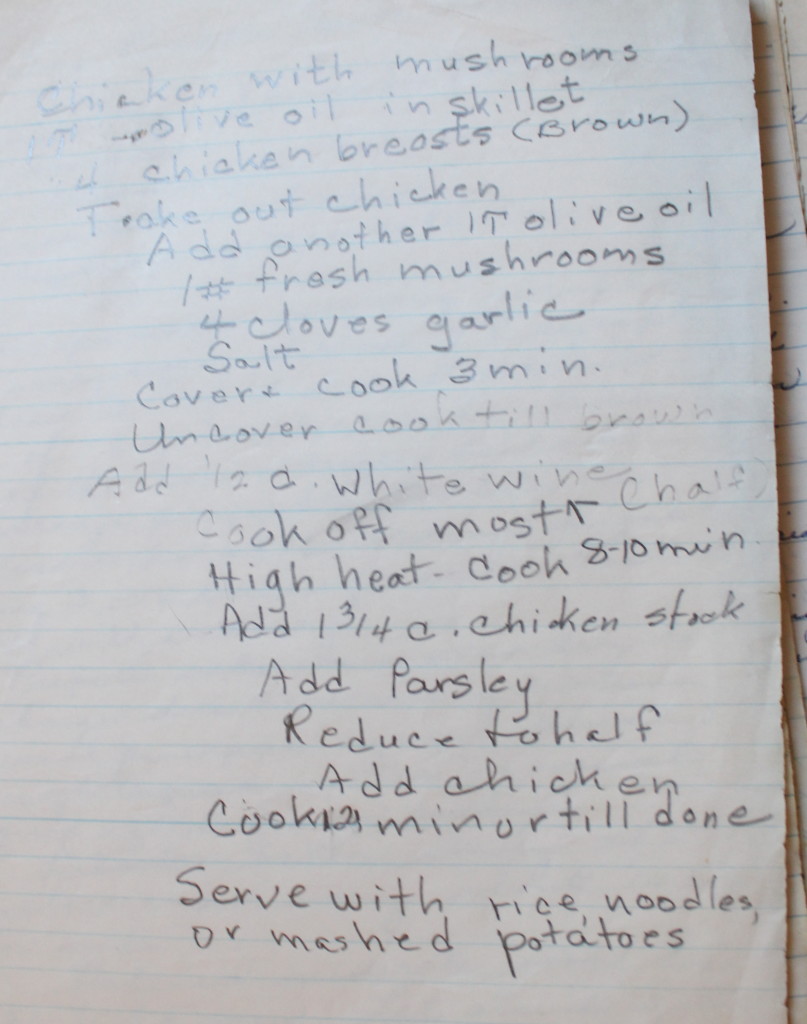 Chicken with mushrooms
1T olive oil in skillet
4 chicken breasts (Brown)
Take out chicken
Add another 1T olive oil
1# fresh mushrooms
4 cloves garlic
Salt
Cover + cook 3 min.
Uncover cook till brown
Add 1/2 c. White wine
(half)
Cook off most ↑
High heat - Cook 8-10 min.
Add 1 3/4 c. chicken stock
Add Parsley
Reduce to half
Add chicken
Cook min or till done
Serve with rice, noodles,
or mashed potatoes